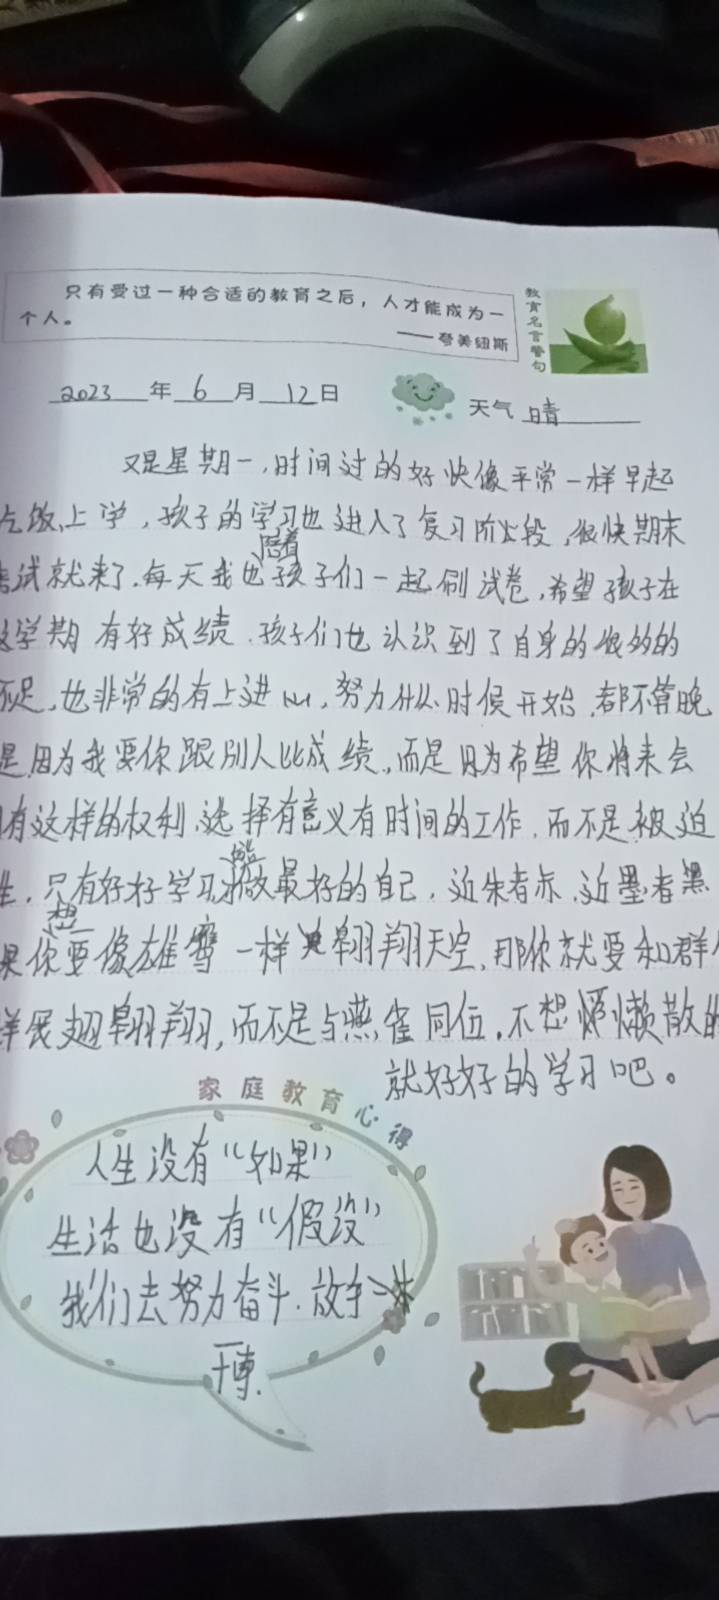 只有受过一种合适的教育之后，人才能成为一
个人。
——夸美纽斯
教育名言警句
2023年6月12日
天气 晴
又是星期一，时间过的好快像平常一样早起
吃饭上学，孩子的学习也进入了复习阶段，很快期末
考试就来了，每天我也陪着孩子们一起刷试卷，希望孩子在
这学期有好成绩，孩子们也认识到了自身的很多的
不足，也非常的有上进心，努力什么时候开始，都不算晚
是因为我要你跟别人比成绩，而是因为希望你将来会
有这样的权利，选择有意义有时间的工作，而不是被迫
生，只有好好学习才能做最好的自己，近朱者赤，近墨者黑
果你想要像雄鹰一样翱翔天空，那你就要和群
样展翅翱翔，而不是与燕雀同伍，不想懒散的
就好好的学习吧。
家庭教育心得
人生没有“如果”
生活也没有“假设”
我们去努力奋斗，放手一
博.